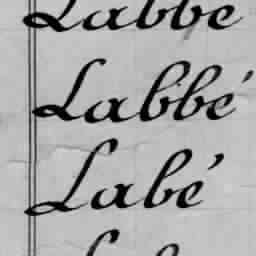 Labbe
Labbé
Labé